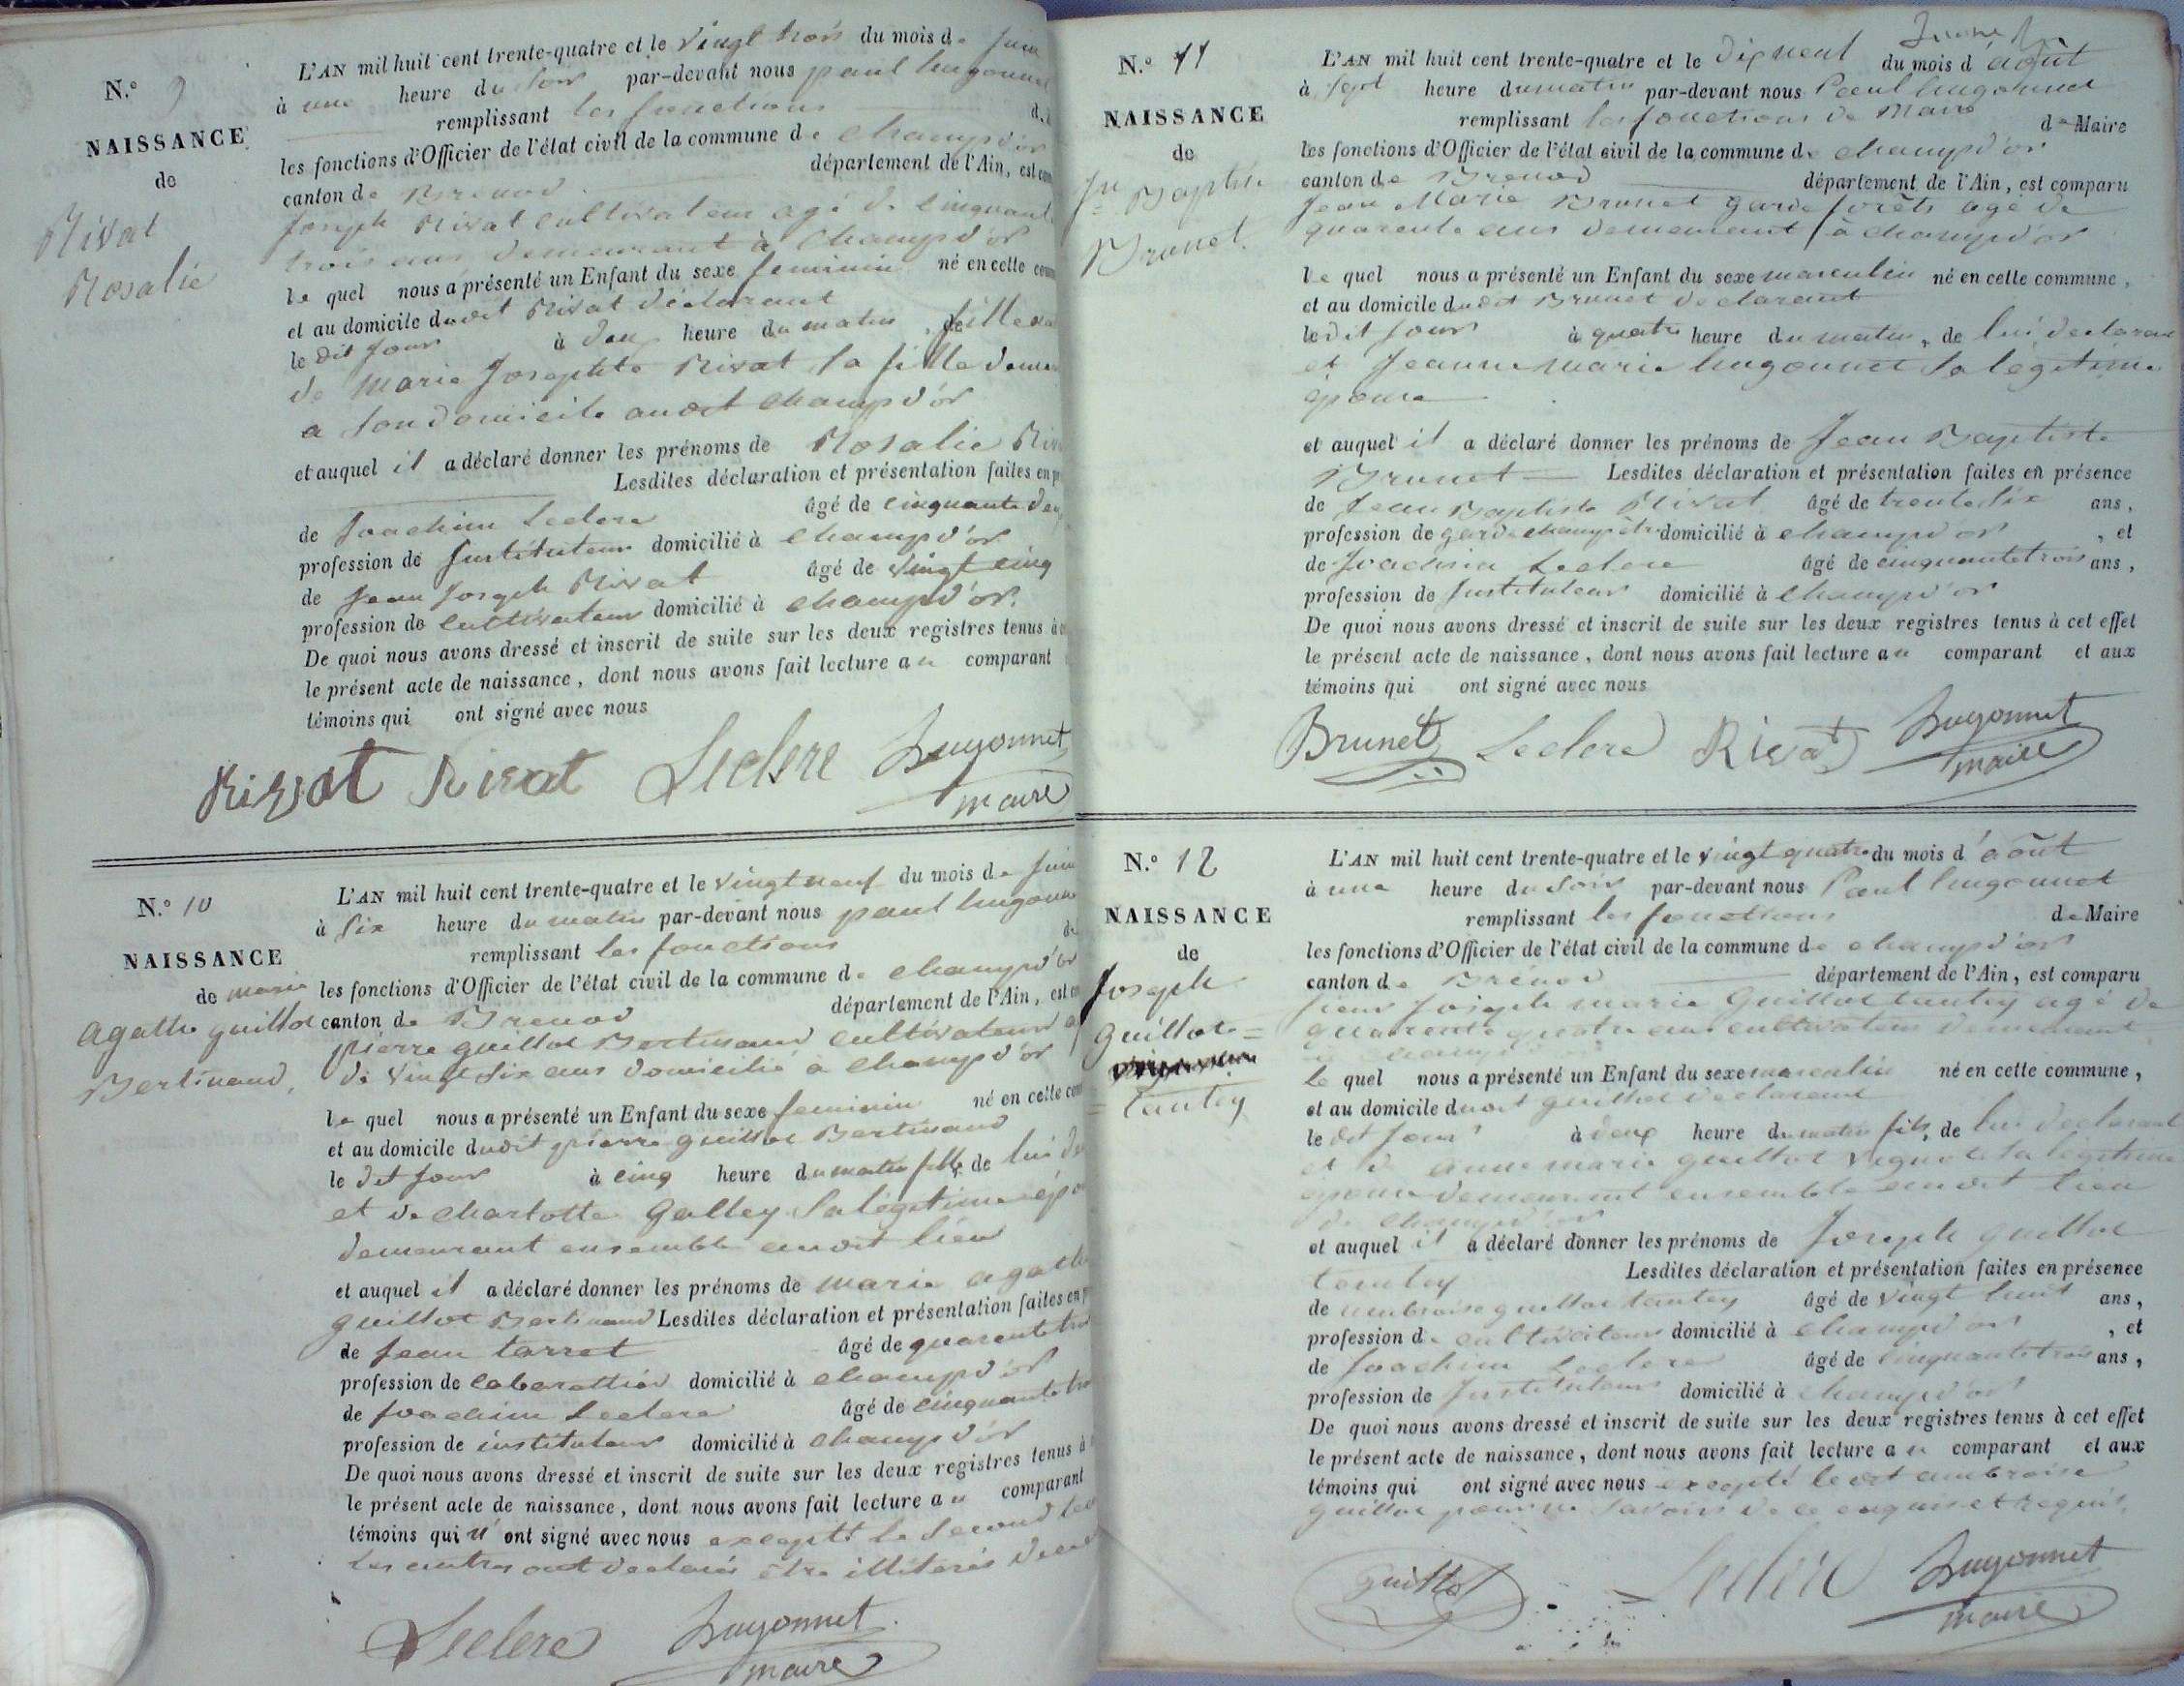 N.º 9
NAISSANCE
de
Rivat
Rosalie
L'AN mil huit cent trente-quatre et le vingt trois du mois de juin
à une heure du soir par-devant nous paul hugonnet
remplissant les fonctions
les fonctions d'Officier de l'état civil de la commune de champd'or
canton de Brenod département de l'Ain, est com
joseph Rivat cultivateur agé de cinquante
trois ans demeurant à champd'or
le quel nous a présenté un Enfant du sexe feminin né en cette com
et au domicile dudit Rivat déclarant
le dit jour à deux heure du matin, de fille
de marie josephte Rivat sa fille demeu
a son domicile audit champd'or
et auquel il a déclaré donner les prénoms de Rosalie Riv
Lesdites déclaration et présentation faites en p
de joachim Leclerc âgé de cinquante deux
profession de instituteur domicilié à champd'or
de jean joseph Rivat âgé de vingt cinq
profession de cultivateur domicilié à champd'or.
De quoi nous avons dressé et inscrit de suite sur les deux registres tenus à
le présent acte de naissance, dont nous avons fait lecture au comparant
témoins qui ont signé avec nous
Rivat Rivat Leclerc hugonnet
maire
N.º 10
NAISSANCE
de marie
agathe guillot
Bertinand,
L'AN mil huit cent trente-quatre et le vingt neuf du mois de juin
à six heure du matin par-devant nous paul hugonn
remplissant les fonctions de
les fonctions d'Officier de l'état civil de la commune de champd'or
canton de Brenod département de l'Ain, est com
pierre guillot Bertinand cultivateur a
de vingt six ans domicilié à champd'or
le quel nous a présenté un Enfant du sexe feminin né en cette com
et au domicile dudit pierre guillot Bertinand
le dit jour à cinq heure du matin fille, de lui de
et de charlotte Galley sa légitime épo
demeurant ensemble audit lieu
et auquel il a déclaré donner les prénoms de marie agathe
guillot Bertinand Lesdites déclaration et présentation faites en p
de jean tarret âgé de quarante
profession de cabarettier domicilié à champd'or
de joachim Leclerc âgé de cinquante
profession de instituteur domicilié à champd'or
De quoi nous avons dressé et inscrit de suite sur les deux registres tenus à
le présent acte de naissance, dont nous avons fait lecture au comparant
témoins qui n' ont signé avec nous excepté le second
les autres ont déclarés être illitérés
Leclerc hugonnet
maire
N.º 11
NAISSANCE
de
Jn Baptiste
Brunet.
L'AN mil huit cent trente-quatre et le dix neuf du mois d'août
à sept heure du matin par-devant nous Paul hugonnet
remplissant les fonctions de Maire de Maire
les fonctions d'Officier de l'état civil de la commune de champd'or
canton de Brenod département de l'Ain, est comparu
Jean Marie Brunet garde forêts agé de
quarante ans demeurant à champd'or
le quel nous a présenté un Enfant du sexe masculin né en cette commune,
et au domicile dudit Brunet declarant
le dit jour à quatre heure du matin, de lui declarant
et jeanne marie hugonnet sa legitime
épouse
et auquel il a déclaré donner les prénoms de Jean Baptiste
Brunet Lesdites déclaration et présentation faites en présence
de Jean Baptiste Rivat âgé de trente six ans,
profession de garde champêtre domicilié à champd'or, et
de Joachim Leclerc âgé de cinquante trois ans,
profession de Instituteur domicilié à champd'or
De quoi nous avons dressé et inscrit de suite sur les deux registres tenus à cet effet
le présent acte de naissance, dont nous avons fait lecture au comparant et aux
témoins qui ont signé avec nous
Brunet Leclerc Rivat hugonnet
maire
N.º 12
NAISSANCE
de
Joseph
guillot=
=tantey
L'AN mil huit cent trente-quatre et le vingt quatre du mois d'août
à une heure du soir par-devant nous Paul hugonnet
remplissant les fonctions de Maire
les fonctions d'Officier de l'état civil de la commune de champd'or
canton de Brénod département de l'Ain, est comparu
sieur Joseph marie Guillot tantey agé de
quarante quatre ans cultivateur demeurant
à champd'or
le quel nous a présenté un Enfant du sexe masculin né en cette commune,
et au domicile dudit guillot declarant
le dit jour à deux heure du matin fils, de lui declarant
et de anne marie guillot sa légitime
épouse demeurant ensemble audit lieu
de champd'or
et auquel il a déclaré donner les prénoms de Joseph guillot
tantey Lesdites déclaration et présentation faites en présence
de ambroise guillot tantey âgé de vingt huit ans,
profession de cultivateur domicilié à champd'or, et
de Joachim Leclerc âgé de cinquante trois ans,
profession de Instituteur domicilié à champd'or
De quoi nous avons dressé et inscrit de suite sur les deux registres tenus à cet effet
le présent acte de naissance, dont nous avons fait lecture au comparant et aux
témoins qui ont signé avec nous excepté ledit ambroise
guillot pour ne savoir de ce enquis et requis
guillot Leclerc hugonnet
maire